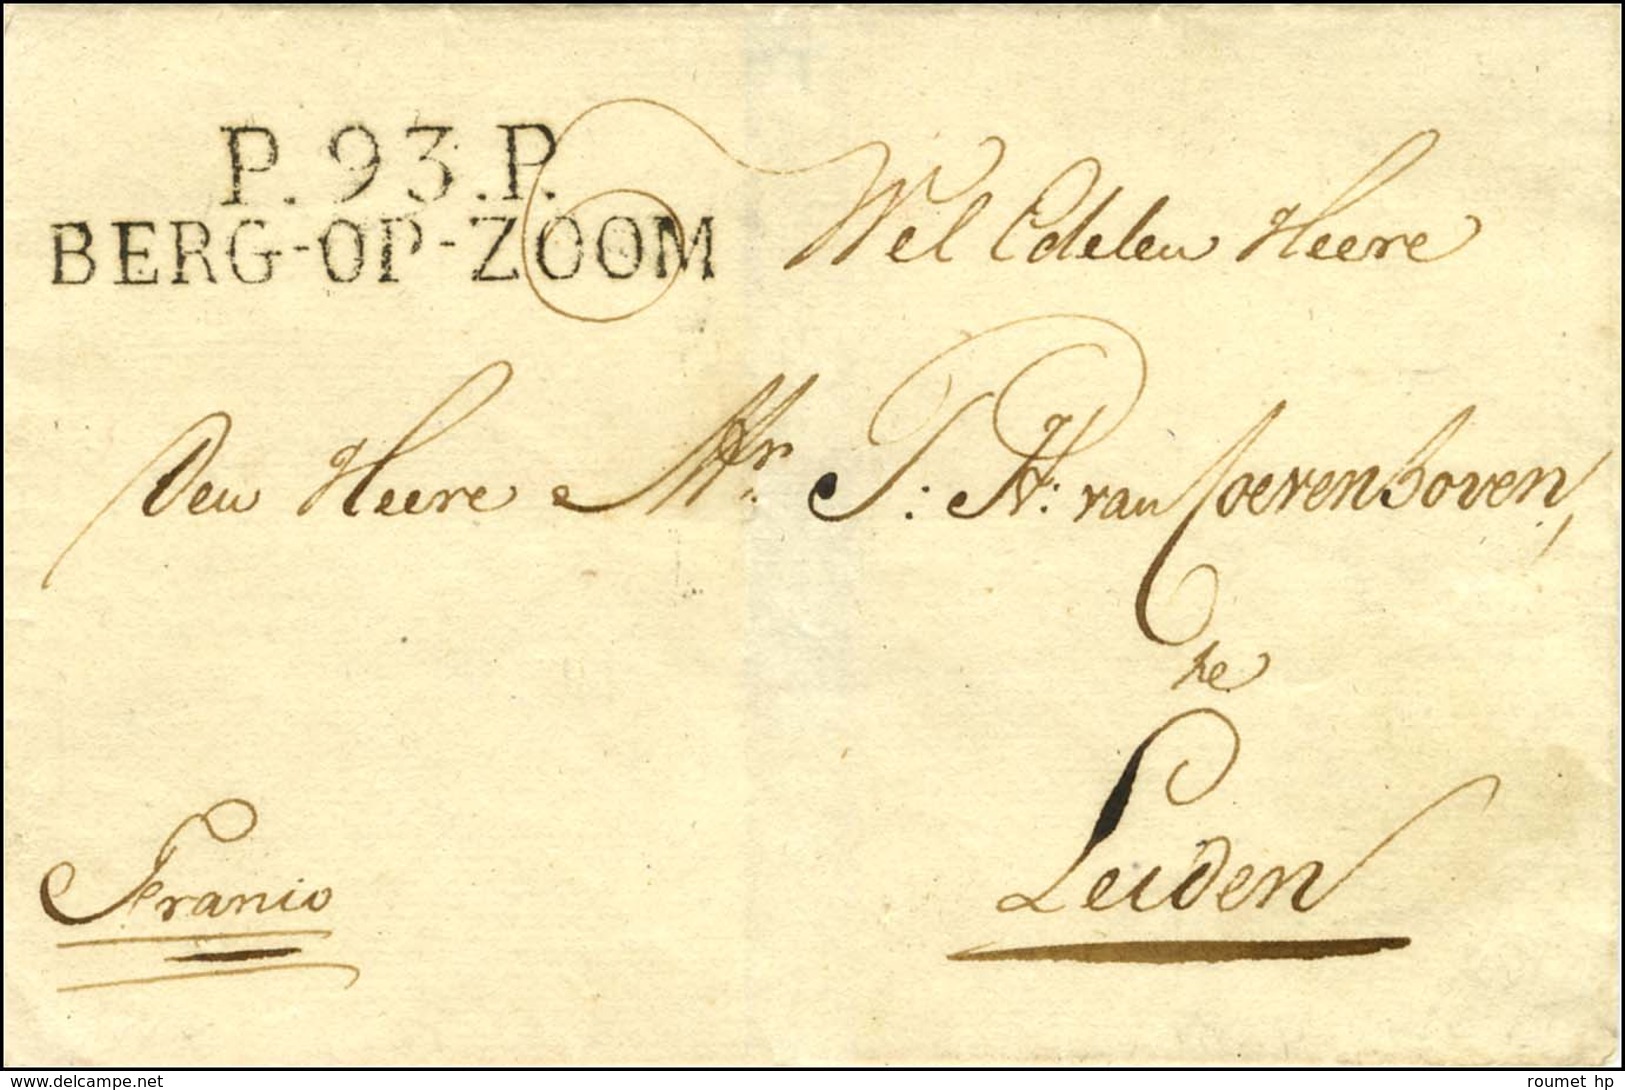 P.93.P.
BERG-OP-ZOOM
Wel Edelen Heere
Den Heere Mr. J: H: van Coevenhoven,
te
Leiden
Franco
www.delcampe.net
roumet hp